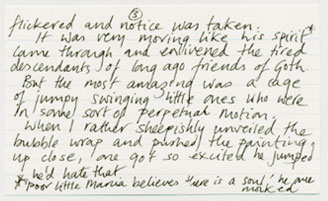 ③
flickered and notice was taken.
It was very moving like his spirit*
came through and enlivened the tired
descendants of long ago friends of Goth.
But the most amazing was a cage
of jumpy swinging little ones who were
in some sort of perpetual motion.
When I rather sheepishly unveiled the
bubble wrap and pushed the painting
up close, one got so excited he jumped
he'd hate that
*poor little Maria believes there is a soul, he once
marked